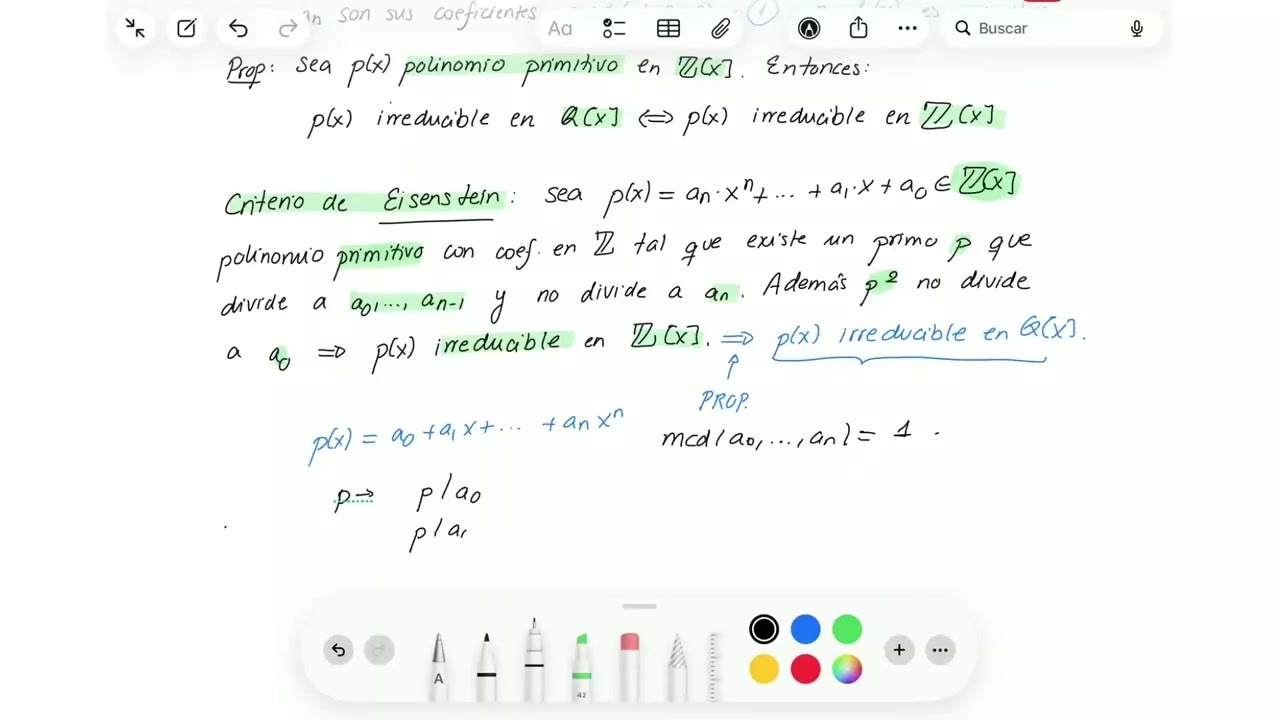 an son sus coeficientes
Aa
Buscar
Prop: sea p(x) polinomio primitivo en ℤ[x]. Entonces:
p(x) irreducible en ℚ[x] ⟺ p(x) irreducible en ℤ[x]
Criterio de Eisenstein: sea p(x) = an·xⁿ + ... + a₁·x + a₀ ∈ ℤ[x]
polinomio primitivo con coef. en ℤ tal que existe un primo p que
divide a a₀, ..., an-1 y no divide a an. Además p² no divide
a a₀ ⟹ p(x) irreducible en ℤ[x]. ⟹ p(x) irreducible en ℚ[x].
PROP.
p(x) = a₀ + a₁x + ... + an xⁿ mcd(a₀, ..., an) = 1.
p → p/a₀
p/a₁
A
42